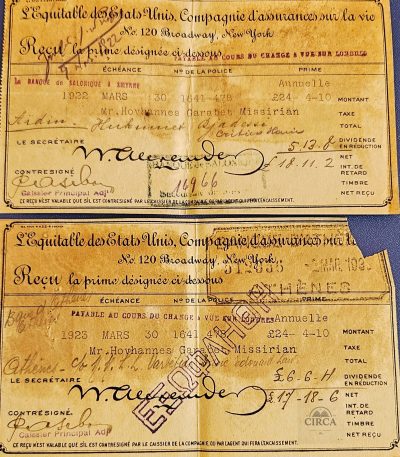 L'Equitable des Etats Unis, Compagnie d'assurances sur la vie
No. 120 Broadway, New York
Reçu la prime désignée ci-dessous
PAYABLE AU COURS DU CHANGE A VUE SUR LONDRES
ÉCHÉANCE No DE LA POLICE PRIME
LA BANQUE DE SALONIQUE A SMYRNE Annuelle
1922 MARS 30 1641-478 £24-4-10 MONTANT
Mr. Hovhannes Garabet Missirian TAXE
TOTAL
LE SECRÉTAIRE 5.13.8 DIVIDENDE EN RÉDUCTION
W. Alexander £18.11.2 NET
CONTRESIGNÉ INT. DE RETARD
16966 TIMBRE
Caissier Principal Adjt NET REÇU
CE REÇU N'EST VALABLE QUE S'IL EST CONTRESIGNÉ PAR LE CAISSIER DE LA COMPAGNIE OU PAR L'AGENT QUI FERA L'ENCAISSEMENT.
L'Equitable des Etats Unis, Compagnie d'assurances sur la
No. 120 Broadway, New York
Reçu la prime désignée ci-dessous
ATHÈNES
ÉCHÉANCE No DE LA POLICE PRIME
PAYABLE AU COURS DU CHANGE A VUE SUR LONDRES Annuelle
1923 MARS 30 1641 £24-4-10 MONTANT
Mr. Hovhannes Garabet Missirian TAXE
Athènes TOTAL
LE SECRÉTAIRE £6-6-4 DIVIDENDE EN RÉDUCTION
W. Alexander £17-18-6 NET
CONTRESIGNÉ INT. DE RETARD
TIMBRE
Caissier Principal Adjt NET REÇU
CE REÇU N'EST VALABLE QUE S'IL EST CONTRESIGNÉ PAR LE CAISSIER DE LA COMPAGNIE OU PAR L'AGENT QUI FERA L'ENCAISSEMENT.
CIRCA